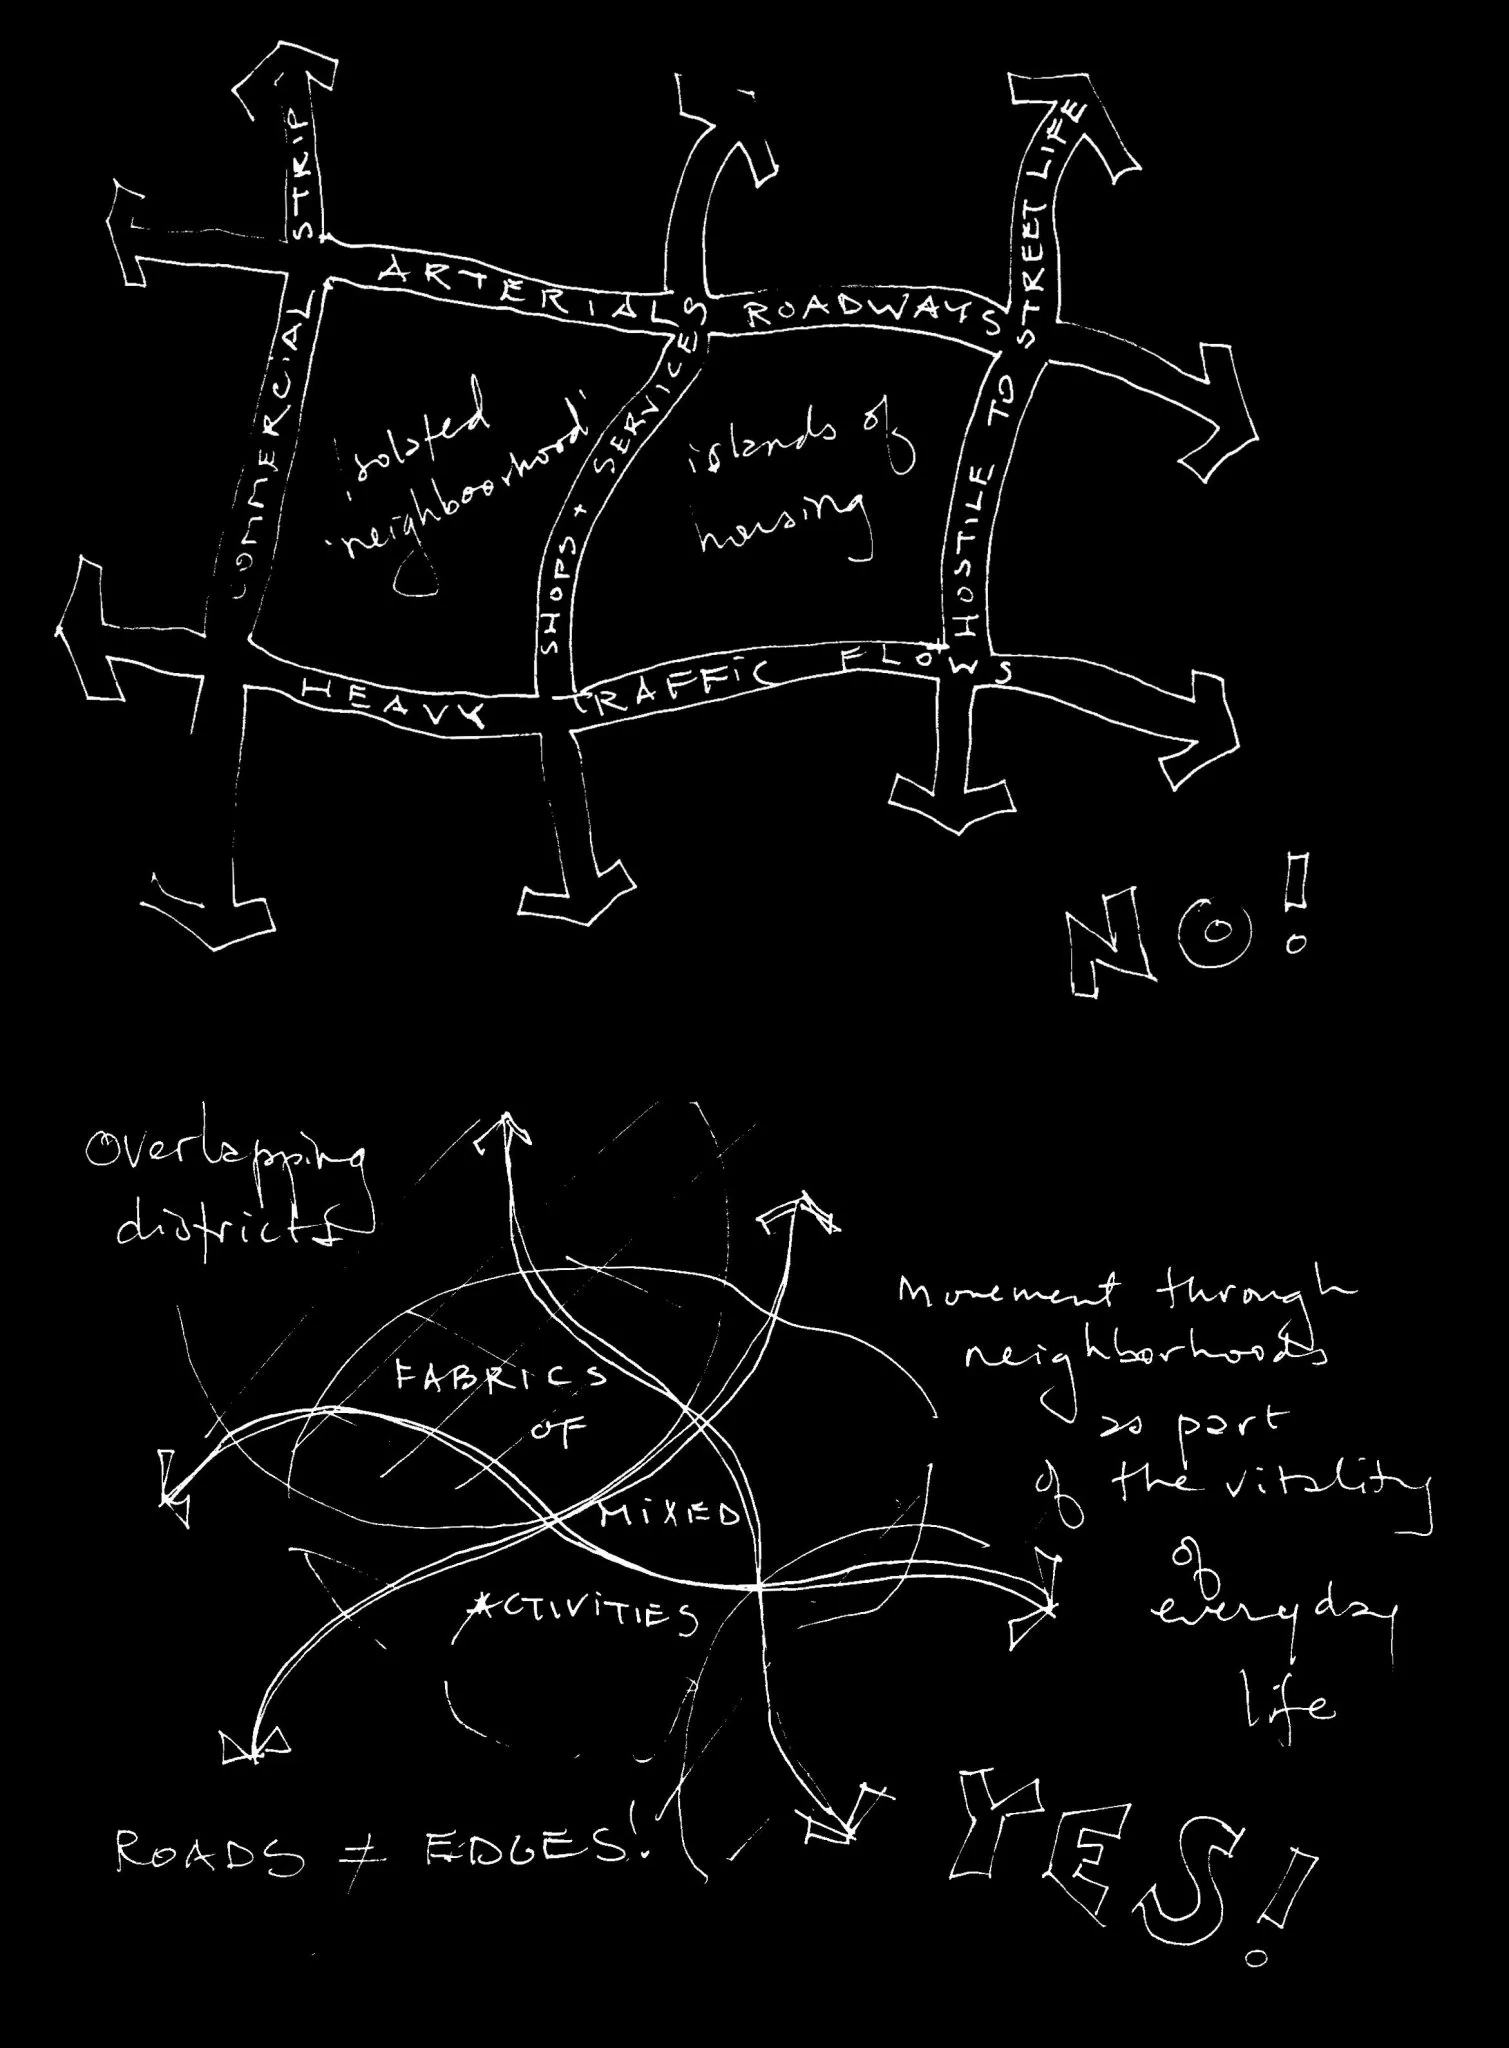 COMMERCIAL STRIP
ARTERIAL ROADWAYS
SHOPS + SERVICES
HOSTILE TO STREET LIFE
HEAVY TRAFFIC FLOWS
isolated
'neighboorhood'
islands of
housing
NO!
Overlapping
districts
FABRICS
OF
MIXED
ACTIVITIES
Movement through
neighborhoods
as part
of the vitality
of
everyday
life
ROADS ≠ EDGES!
YES!